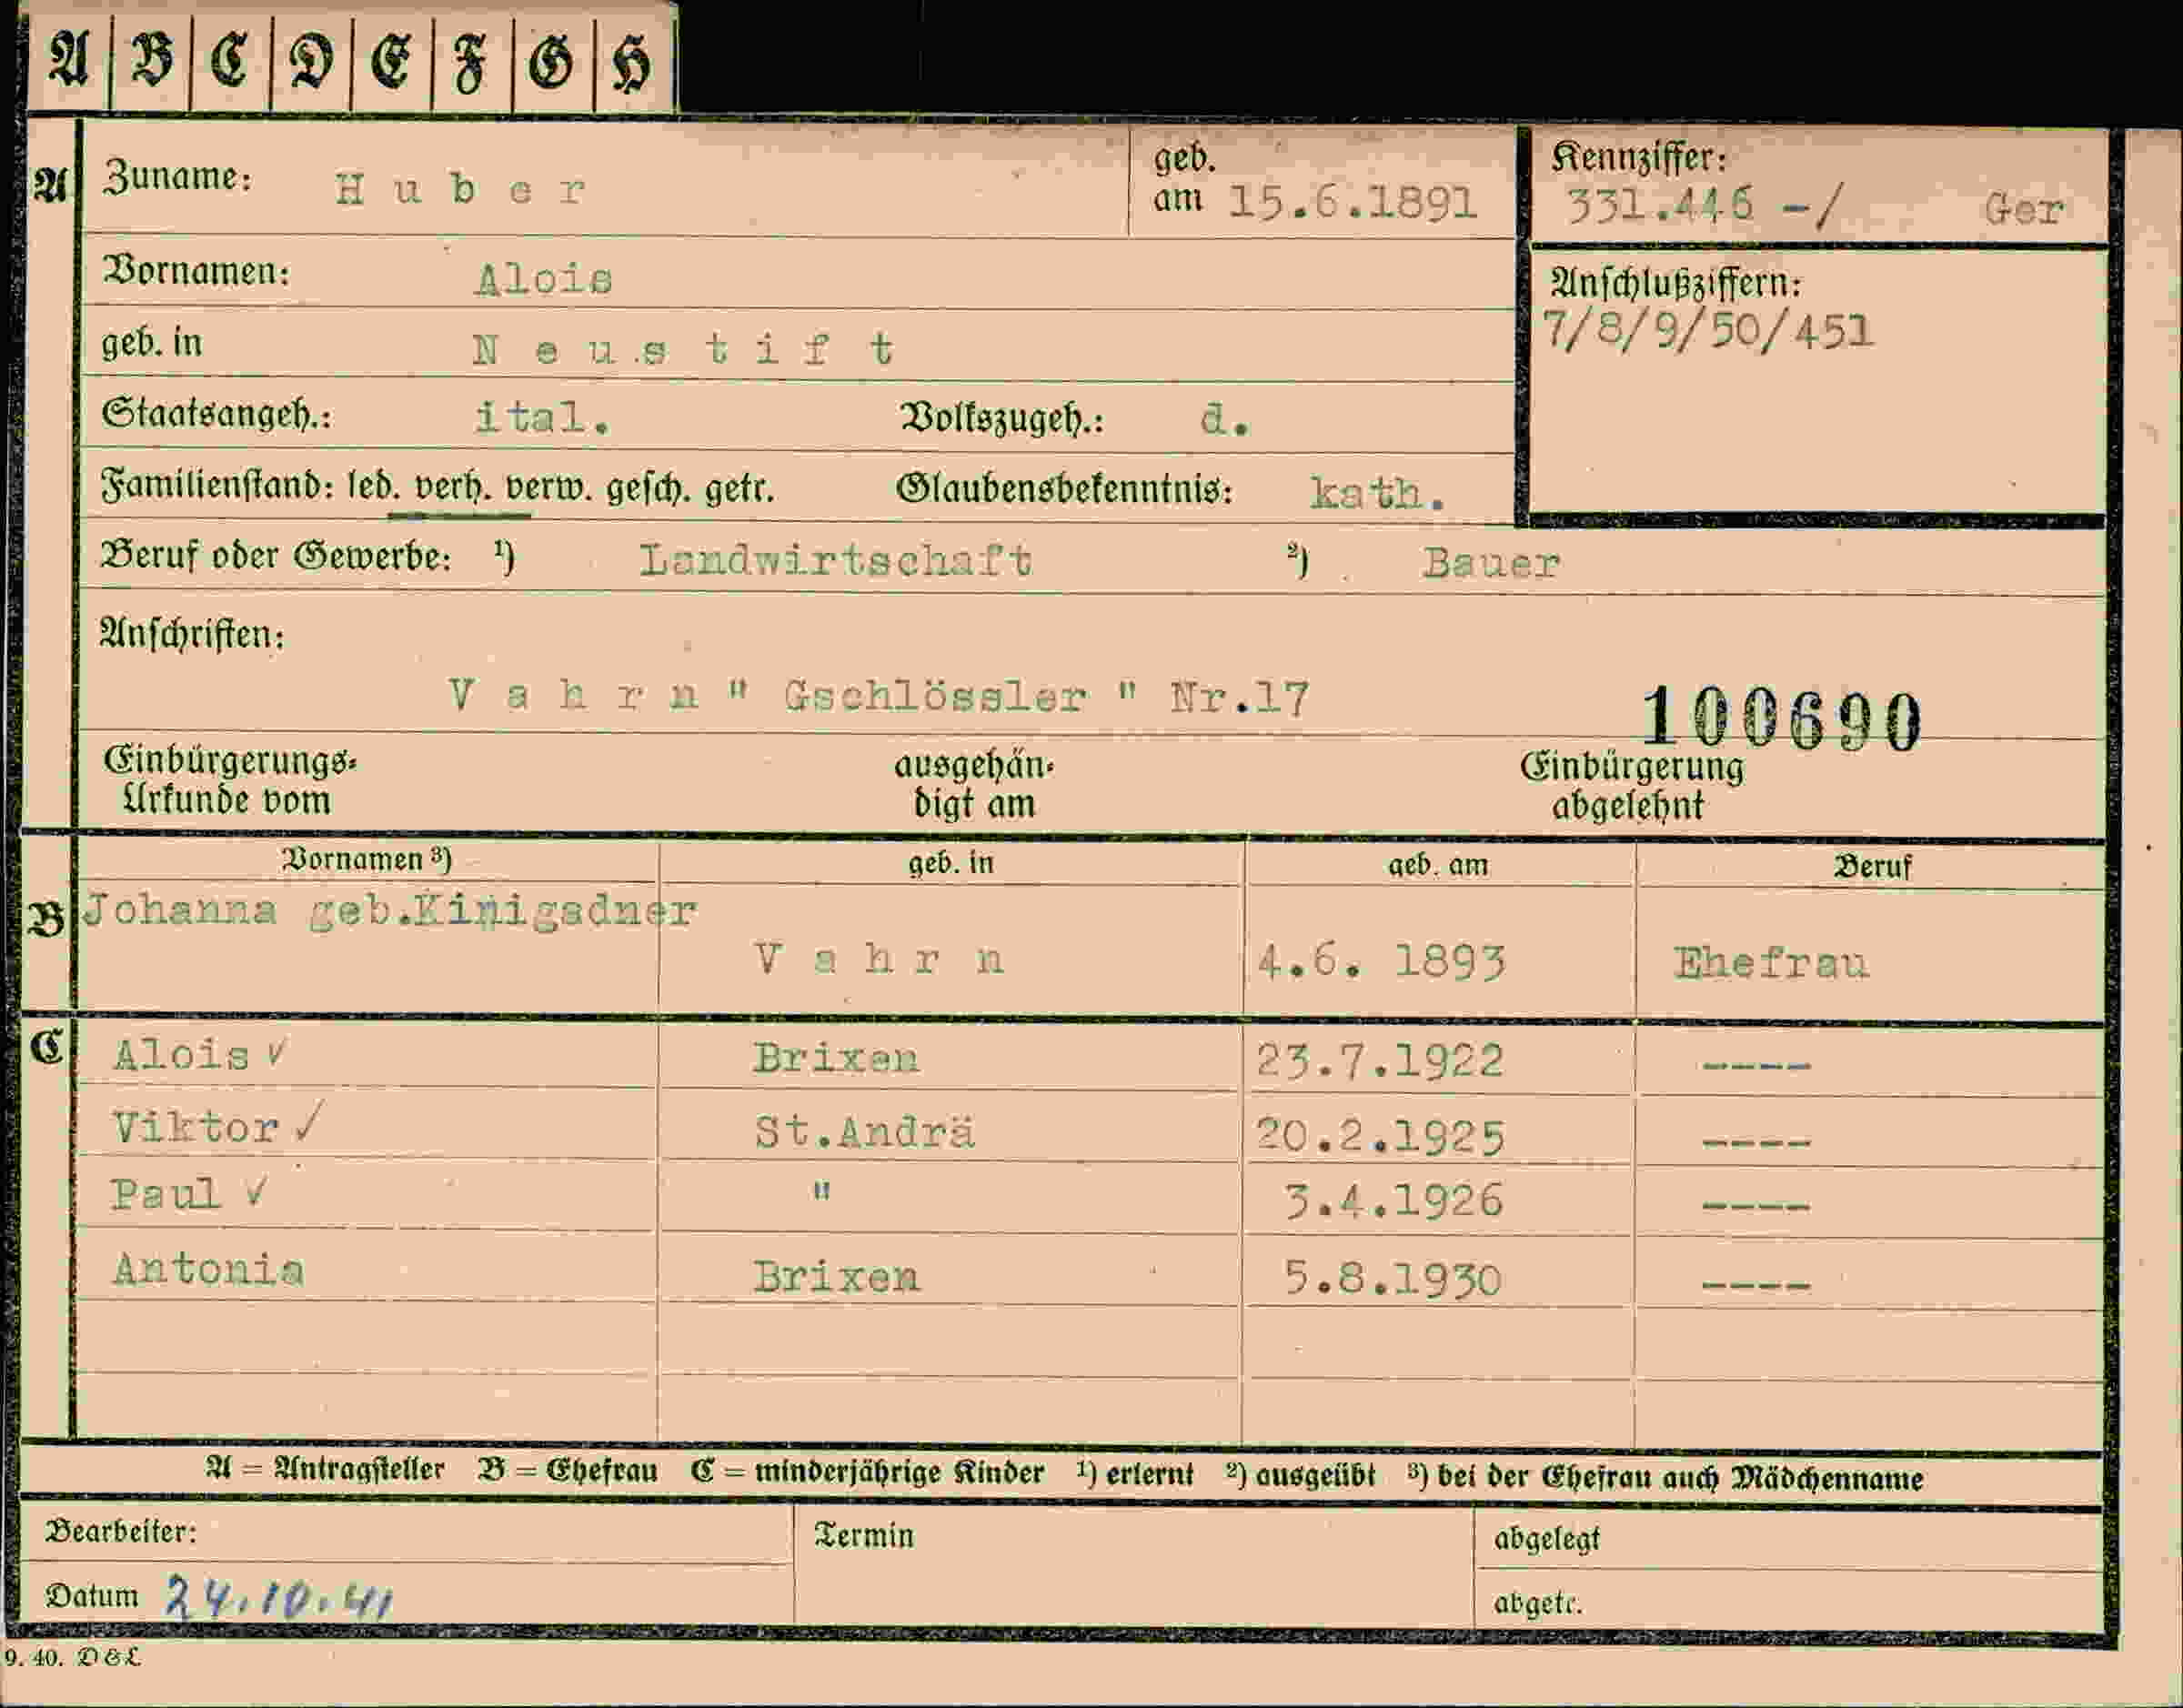 A B C D E F G H
A Zuname: Huber geb. am 15.6.1891 Kennziffer: 331.446 -/ Ger
Vornamen: Alois Anschlußziffern:
7/8/9/50/451
geb. in Neustift
Staatsangeh.: ital. Volkszugeh.: d.
Familienstand: led. verh. verw. gesch. getr. Glaubensbekenntnis: kath.
Beruf oder Gewerbe: 1) Landwirtschaft 2) Bauer
Anschriften:
Vahrn " Gschlössler " Nr.17 100690
Einbürgerungs- ausgehän- Einbürgerung
Urkunde vom digt am abgelehnt
Vornamen 3) geb. in geb. am Beruf
B Johanna geb.Kinigadner
Vahrn 4.6. 1893 Ehefrau
C Alois ✓ Brixen 23.7.1922 ----
Viktor ✓ St.Andrä 20.2.1925 ----
Paul ✓ " 3.4.1926 ----
Antonia Brixen 5.8.1930 ----
A = Antragsteller B = Ehefrau C = minderjährige Kinder 1) erlernt 2) ausgeübt 3) bei der Ehefrau auch Mädchenname
Bearbeiter: Termin abgelegt
Datum 24.10.41 abgetr.
9. 40. D&L